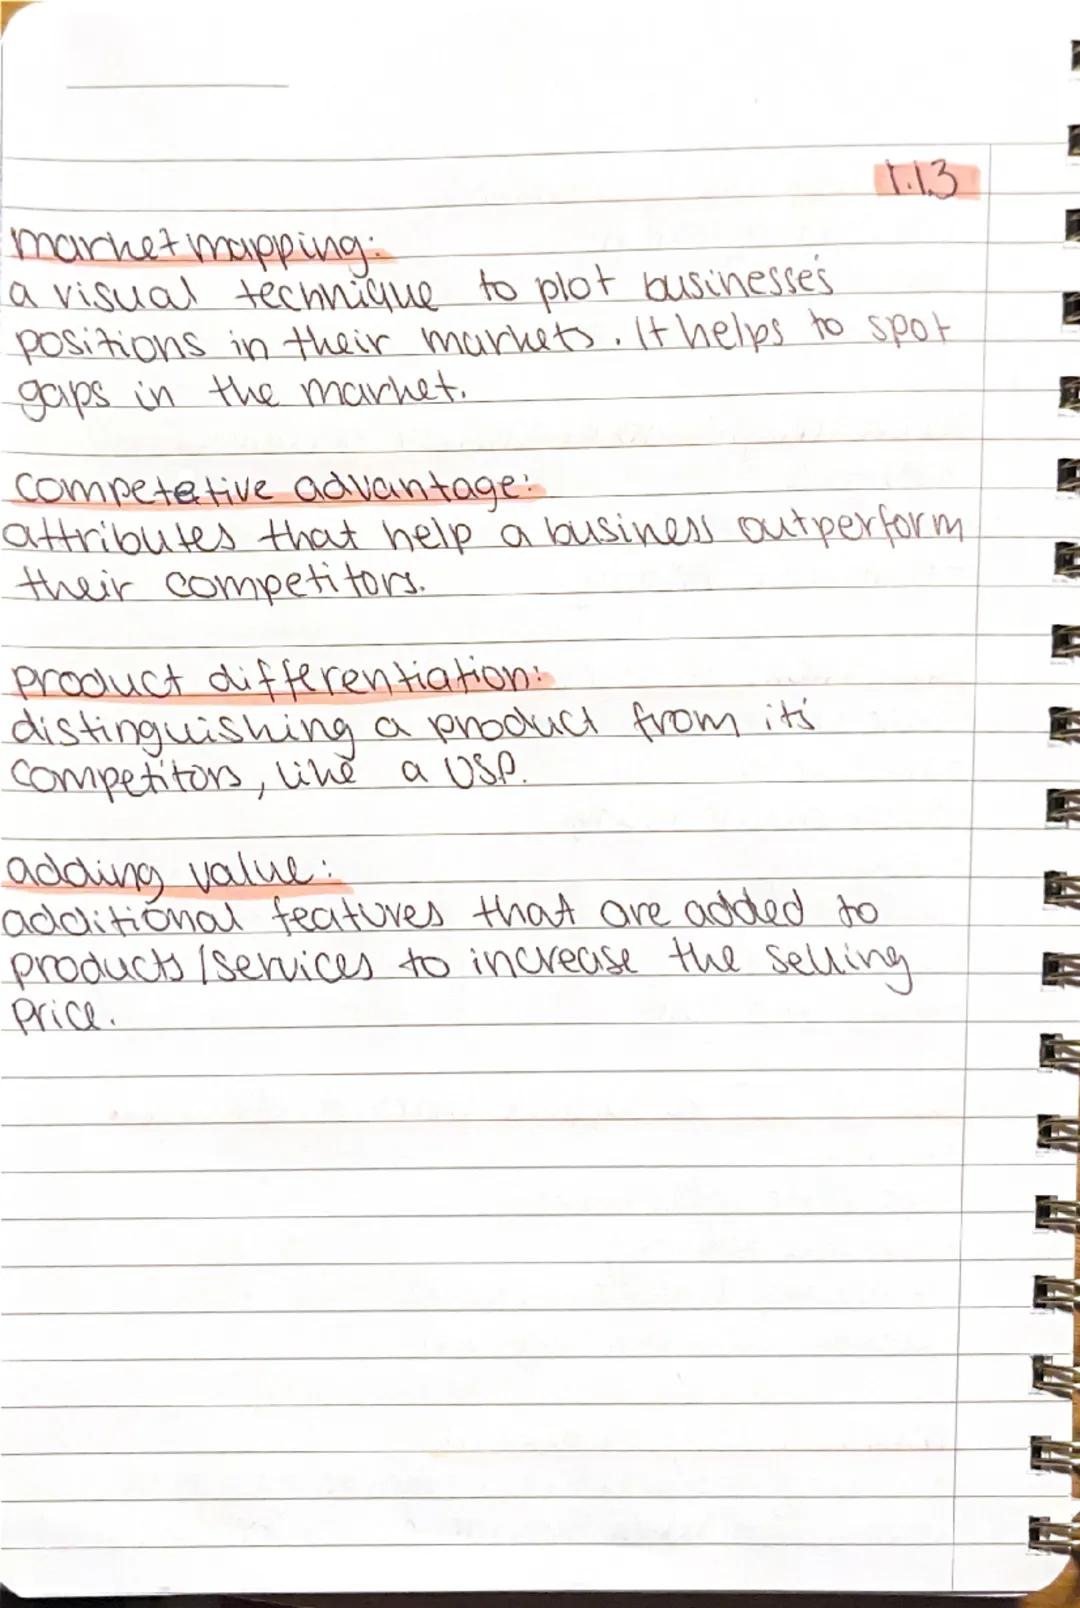 1.1.3
market mapping:
a visual technique to plot businesse's
positions in their markets. It helps to spot
gaps in the market.
competetive advantage:
attributes that help a business outperform
their competitors.
product differentiation:
distinguishing a product from it's
competitors, like a USP.
adding value:
additional features that are added to
products/services to increase the selling
price.